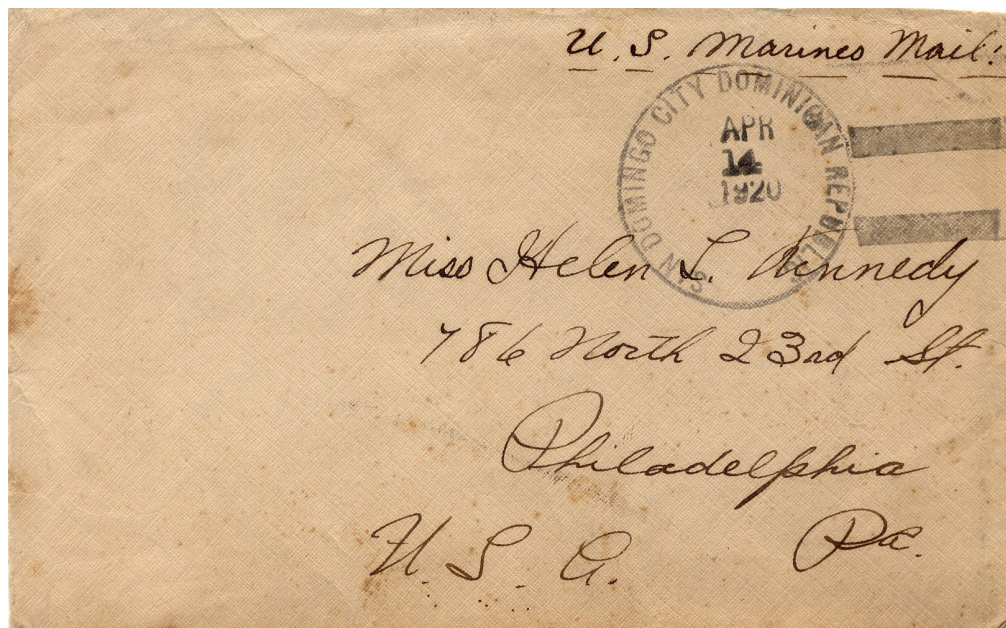 U. S. Marines Mail.
SAN DOMINGO CITY DOMINICAN REPUBLIC
APR
14
1920
Miss Helen L. Kennedy
786 North 23rd St.
Philadelphia
Pa.
U. S. A.